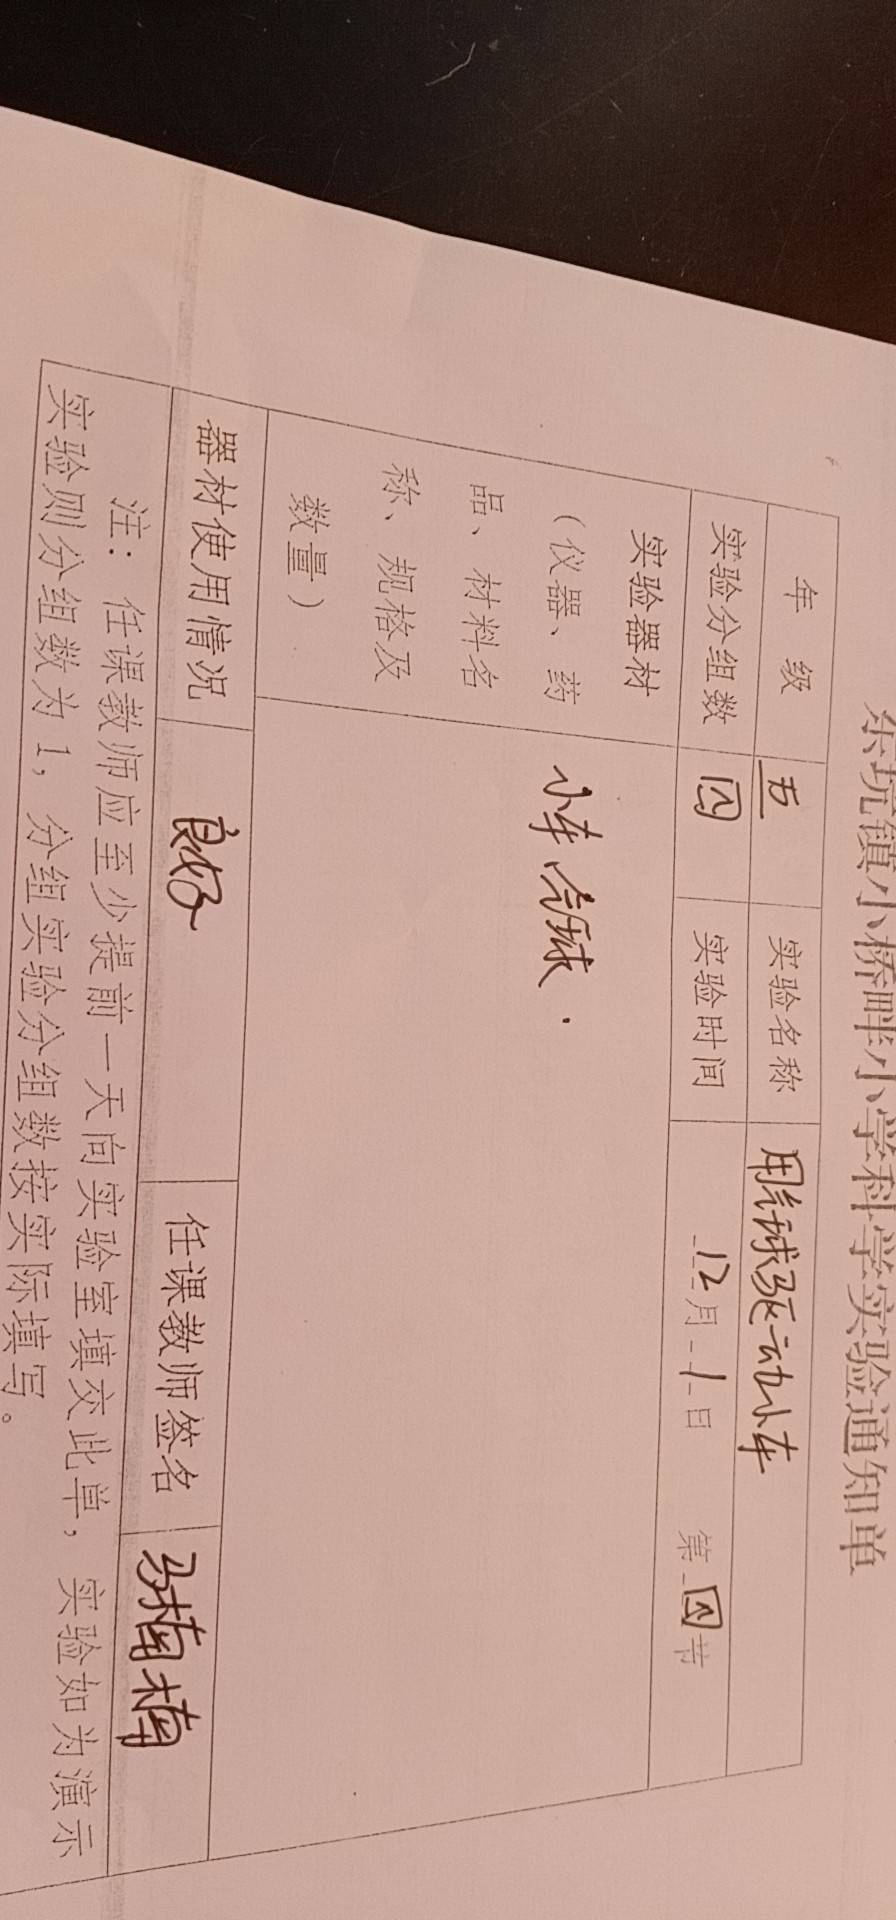 东坑镇小桥畔小学科学实验通知单
年 级 五 实验名称 用气球驱动小车
实验分组数 四 实验时间 12月1日 第四节
实验器材
（仪器、药
品、材料名
称、规格及
数量）
小车 气球.
器材使用情况 良好 任课教师签名 马楠楠
注：任课教师应至少提前一天向实验室填交此单，实验如为演示
实验则分组数为1，分组实验分组数按实际填写。